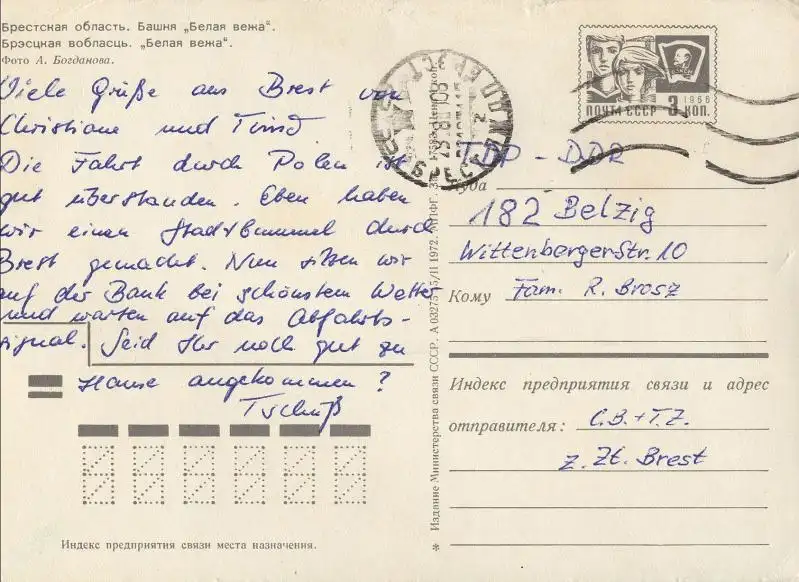 Брестская область. Башня „Белая вежа“.
Брэсцкая вобласць. „Белая вежа“.
Фото А. Богданова.
Viele Grüße aus Brest von
Christiane und
Die Fahrt durch Polen ist
gut überstanden. Eben haben
wir einen Stadtbummel durch
Brest gemacht. Nun sitzen wir
auf der Bank bei schönstem Wetter
und warten auf das Abfahrts-
signal. Seid Ihr noch gut zu
Hause angekommen?
Tschüß
Индекс предприятия связи места назначения.
* Издание Министерства связи СССР. А 03275 15/II 1972.
ПОЧТА СССР 3 КОП.
1966
БРЕСТ
DDR
Куда
182 Belzig
Wittenberger Str. 10
Кому Fam. R. Brosz
Индекс предприятия связи и адрес
отправителя: C.B. + T.Z.
z. Zt. Brest